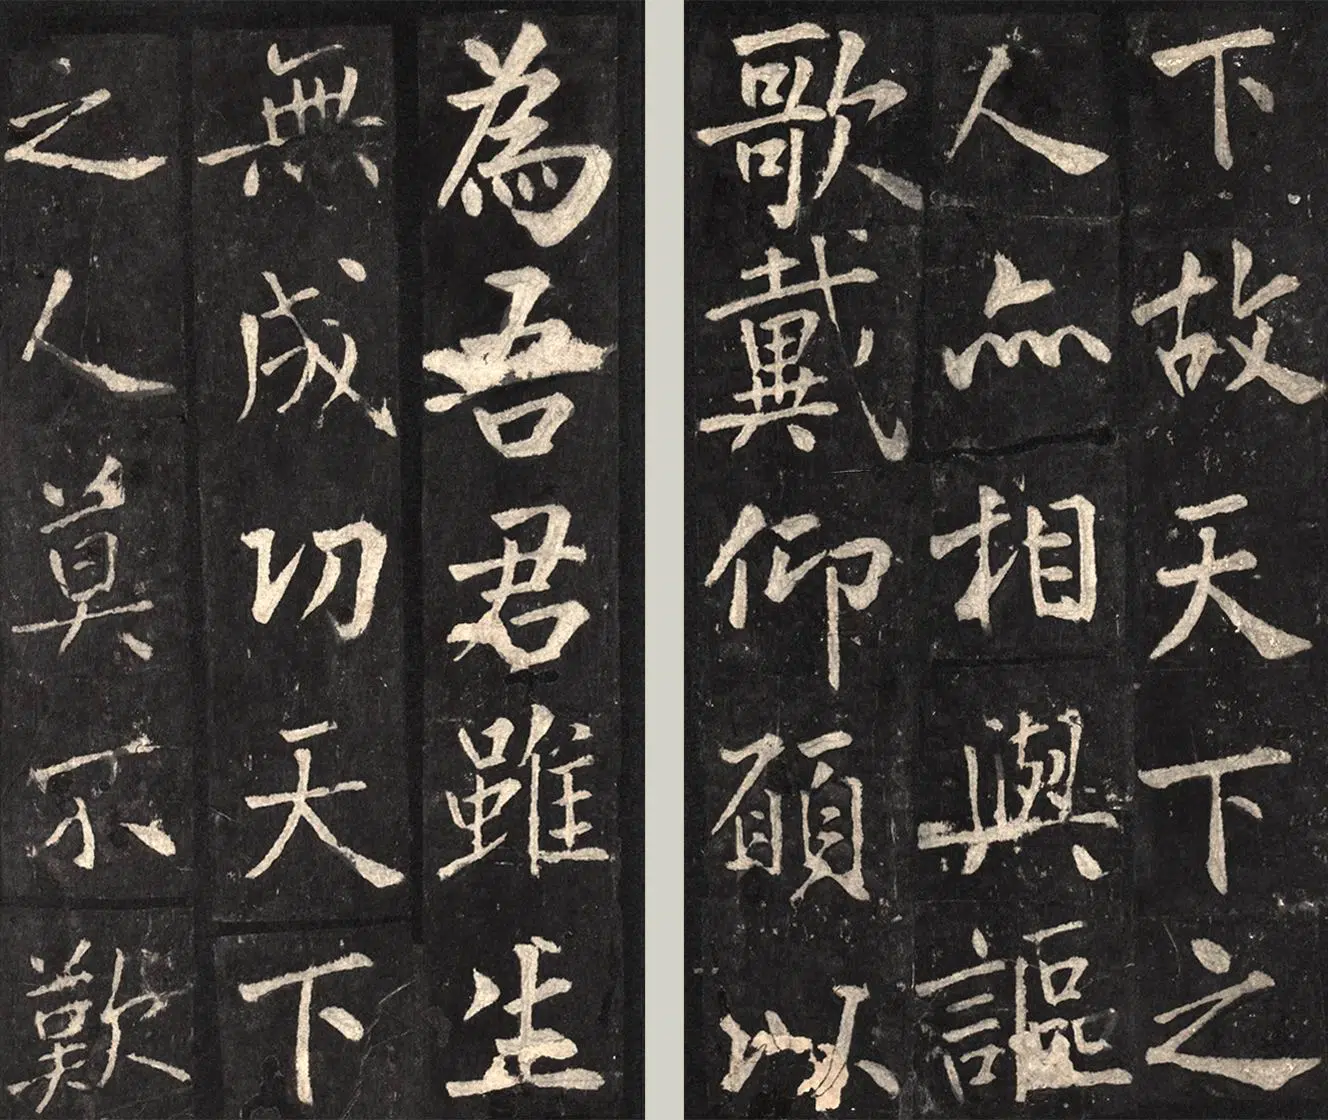 下故天下之
人亦相與謳
歌戴仰願以
為吾君雖生
無成功天下
之人莫不歎